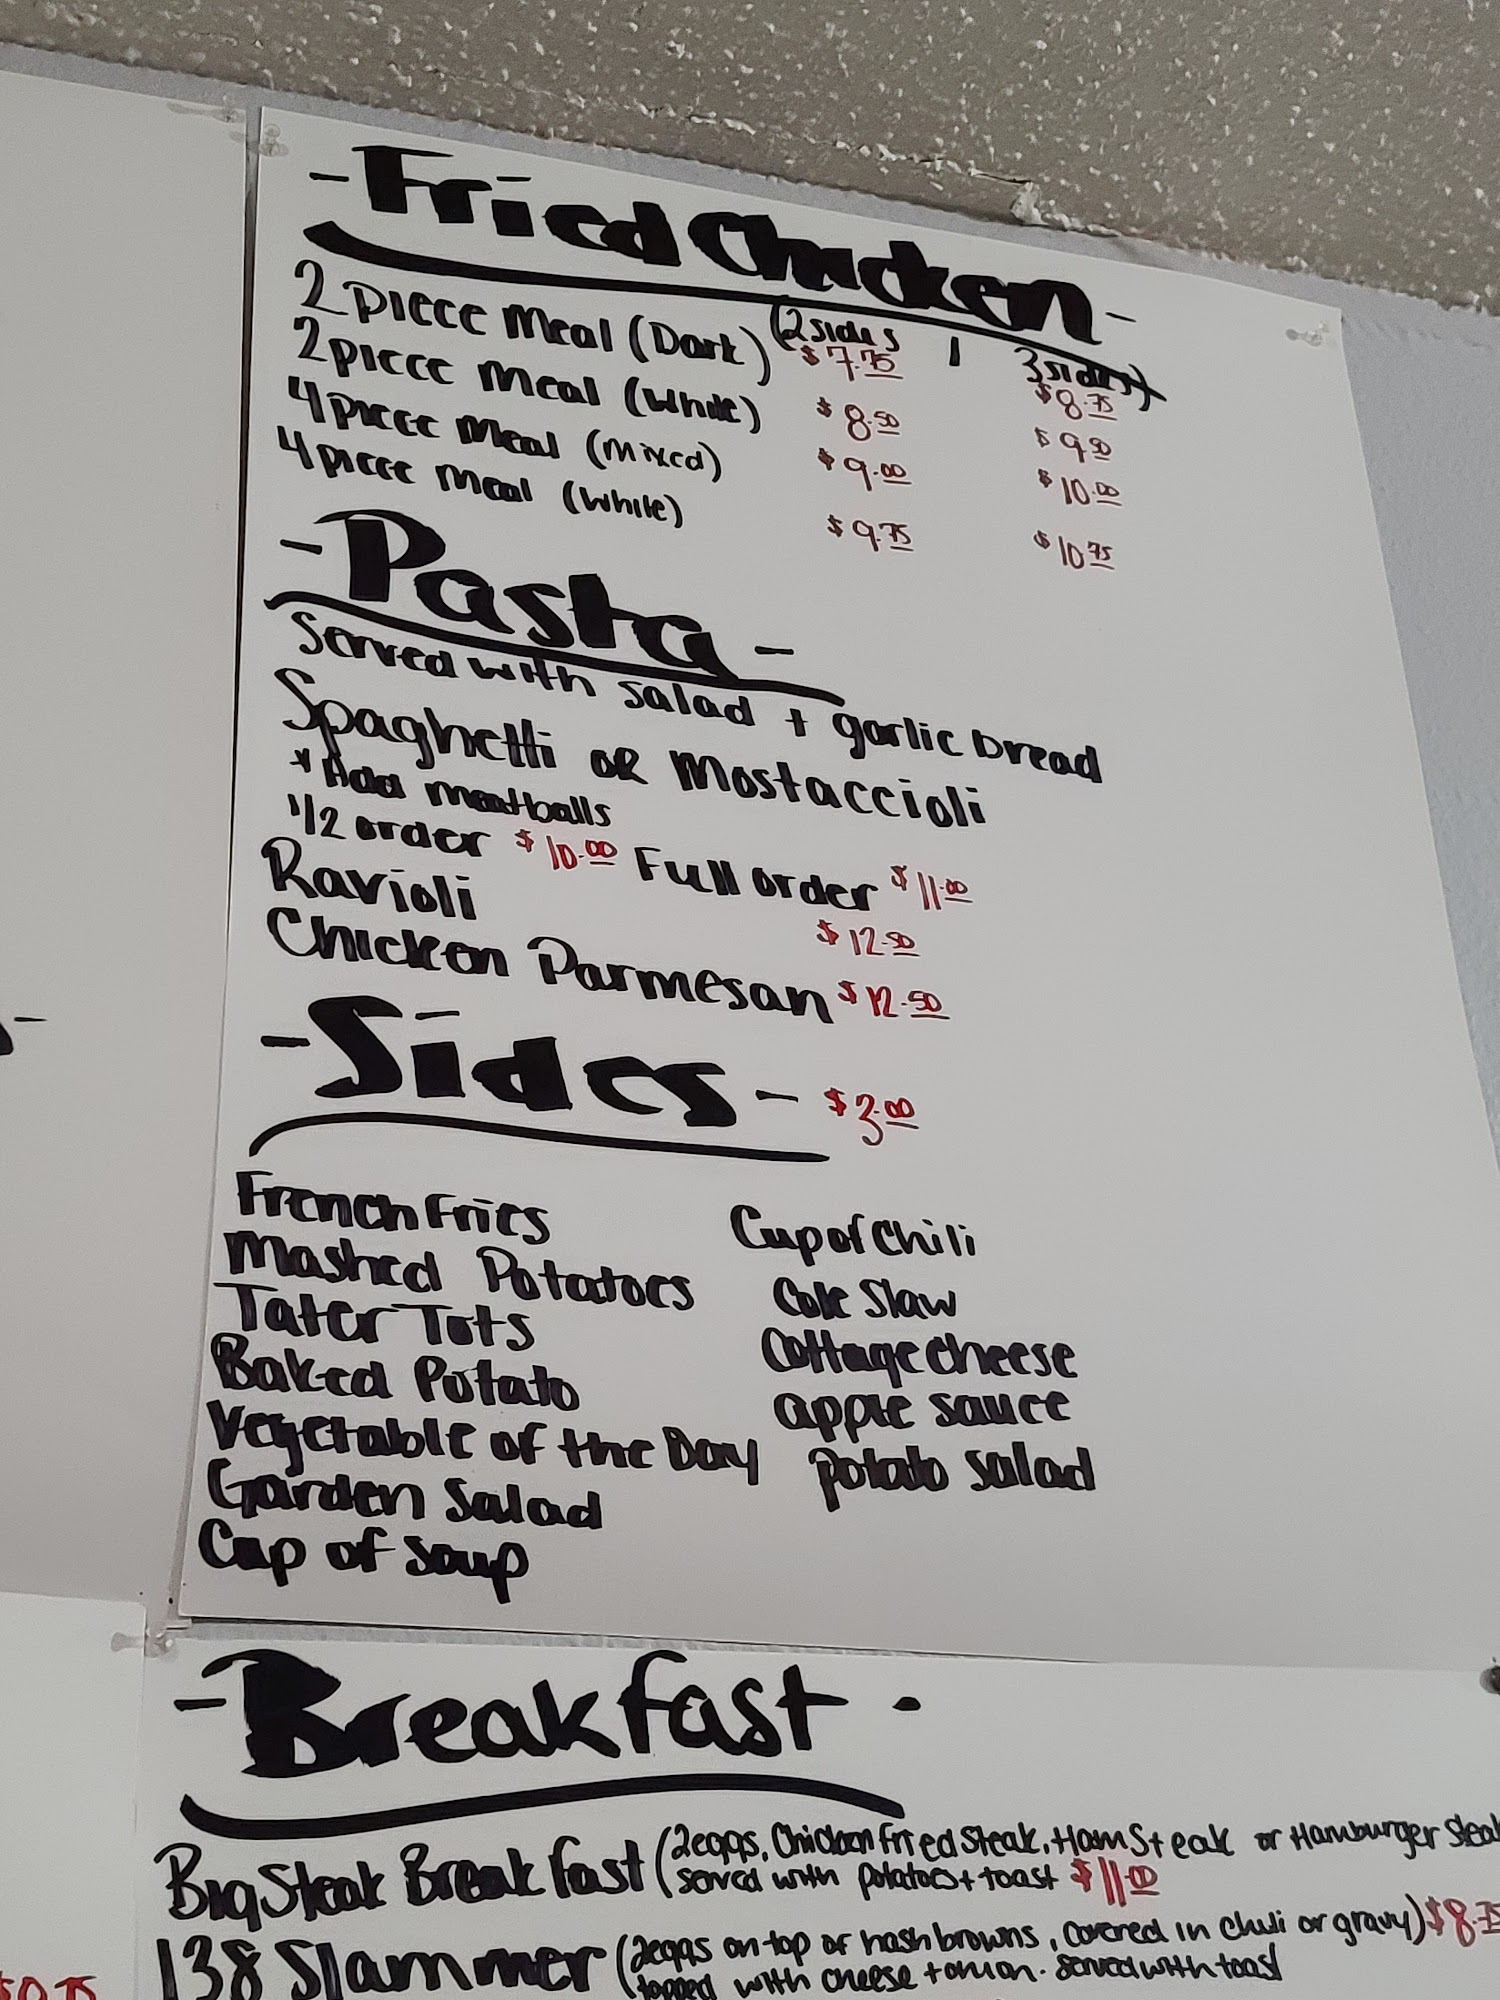 - Fried Chicken -
(2 sides / 3 sides)
2 piece Meal (Dark) $7.75 $8.75
2 piece Meal (White) $8.50 $9.50
4 piece Meal (Mixed) $9.00 $10.00
4 piece Meal (White) $9.75 $10.75
- Pasta -
Served with salad + garlic bread
Spaghetti or Mostaccioli
* Add meatballs
1/2 order $10.00 Full order $11.00
Ravioli $12.50
Chicken Parmesan $12.50
- Sides - $3.00
French Fries
Mashed Potatoes
Tater Tots
Baked Potato
Vegetable of the Day
Garden Salad
Cup of Soup
Cup of Chili
Cole Slaw
Cottage Cheese
apple sauce
potato salad
- Breakfast -
Big Steak Breakfast (2 eggs, Chicken Fried Steak, Ham Steak or Hamburger Steak
served with potatoes + toast $11.00
138 Slammer (2 eggs on top of hash browns, covered in chili or gravy) $8.75
topped with cheese + onion. Served with toast
$0.75